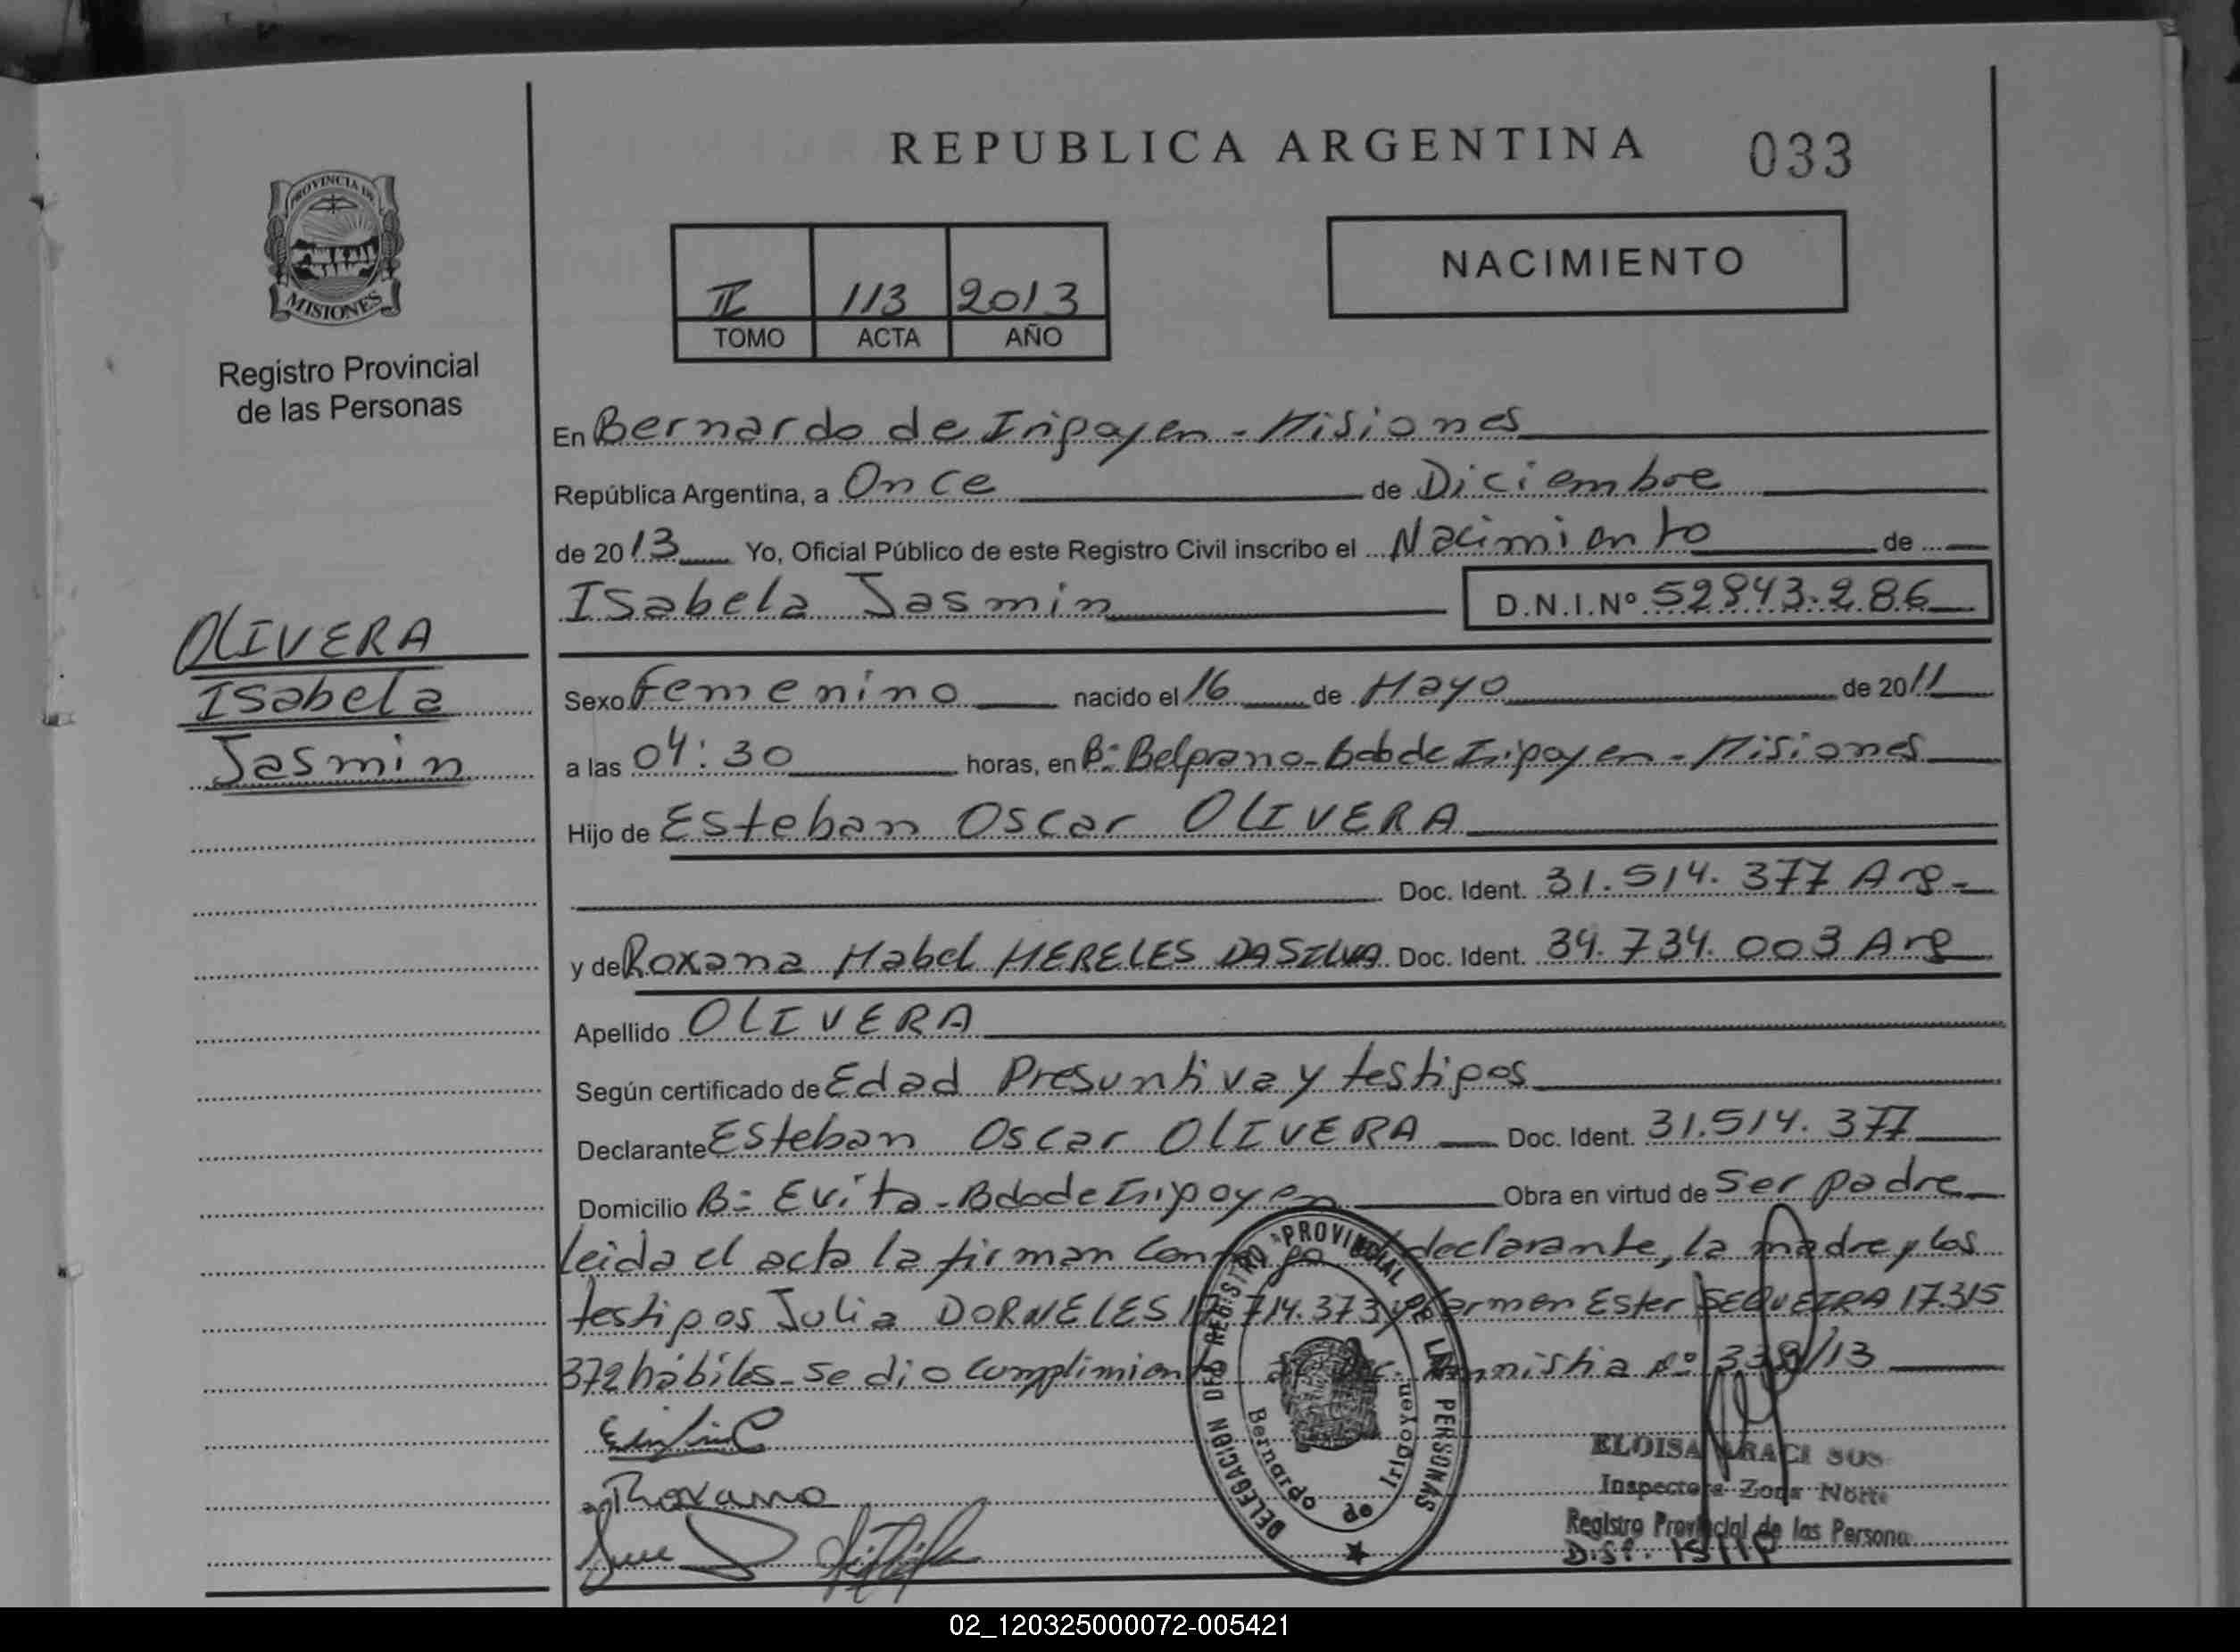 REPUBLICA ARGENTINA 033
PROVINCIA DE
MISIONES
Registro Provincial
de las Personas
II 113 2013
TOMO ACTA AÑO
NACIMIENTO
En Bernardo de Irigoyen - Misiones
República Argentina, a Once de Diciembre
de 2013 Yo, Oficial Público de este Registro Civil inscribo el Nacimiento de
Isabela Jasmin D.N.I.Nº 52943.286
OLIVERA
Isabela
Jasmin
Sexo Femenino nacido el 16 de Mayo de 2011
a las 04:30 horas, en Bº Belgrano - Bdo de Irigoyen - Misiones
Hijo de Esteban Oscar OLIVERA
Doc. Ident. 31.514.377 Arg -
y de Roxana Mabel MERELES DA SILVA Doc. Ident. 34.734.003 Arg
Apellido OLIVERA
Según certificado de Edad Presuntiva y testigos
Declarante Esteban Oscar OLIVERA Doc. Ident. 31.514.377
Domicilio Bº Evita - Bdo de Irigoyen Obra en virtud de Ser padre
leida el acta la firman declarante, la madre y los
testigos Julia DORNELES 714.373 y Carmen Ester SEQUEIRA 17.315
372 hábiles - se dio cumplimiento Amnistia Nº /13
Roxana
DELEGACION DEL REGISTRO PROVINCIAL DE LAS PERSONAS
Bernardo de Irigoyen
ELOISA ARACI SOS
Inspectora Zona Norte
Registro Provincial de las Persona
Disp.
02_120325000072-005421